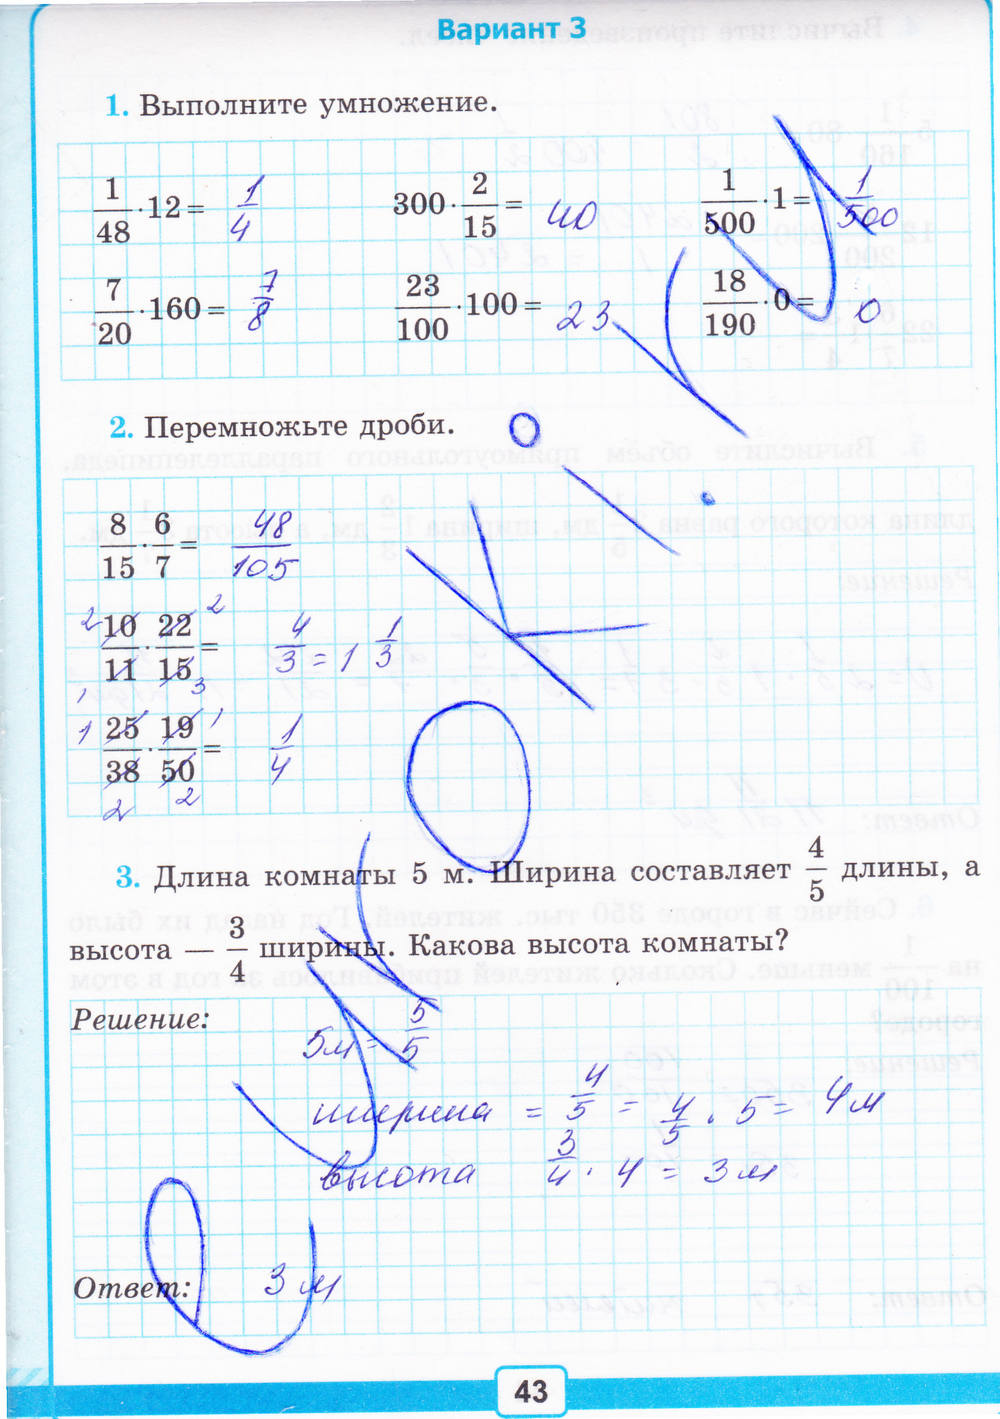 Вариант 3
1. Выполните умножение.
1/48 · 12 = 1/4 300 · 2/15 = 40 1/500 · 1 = 1/500
7/20 · 160 = 7/8 23/100 · 100 = 23 18/190 · 0 = 0
2. Перемножьте дроби.
8/15 · 6/7 = 48/105
2 10/11 1 · 2 22/15 3 = 4/3 = 1 1/3
1 25/38 2 · 1 19/50 2 = 1/4
3. Длина комнаты 5 м. Ширина составляет 4/5 длины, а
высота — 3/4 ширины. Какова высота комнаты?
Решение:
5м = 5/5
ширина = 4/5 = 4/5 · 5 = 4 м
высота 3/4 · 4 = 3 м
Ответ: 3 м
43